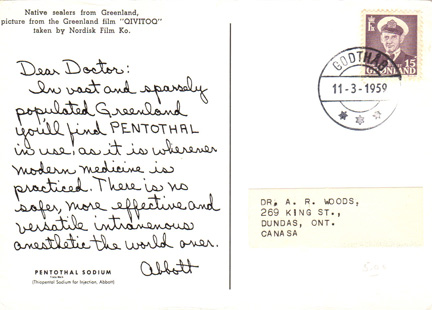 Native sealers from Greenland,
picture from the Greenland film "QIVITOQ"
taken by Nordisk Film Ko.
Dear Doctor:
In vast and sparsely
populated Greenland
you'll find PENTOTHAL
in use, as it is wherever
modern medicine is
practiced. There is no
safer, more effective and
versatile intravenous
anesthetic the world over.
Abbott
PENTOTHAL SODIUM
(Thiopental Sodium for Injection, Abbott)
GODTHAB
11-3-1959
15
GRØNLAND
DR. A. R. WOODS,
269 KING ST.,
DUNDAS, ONT.
CANASA